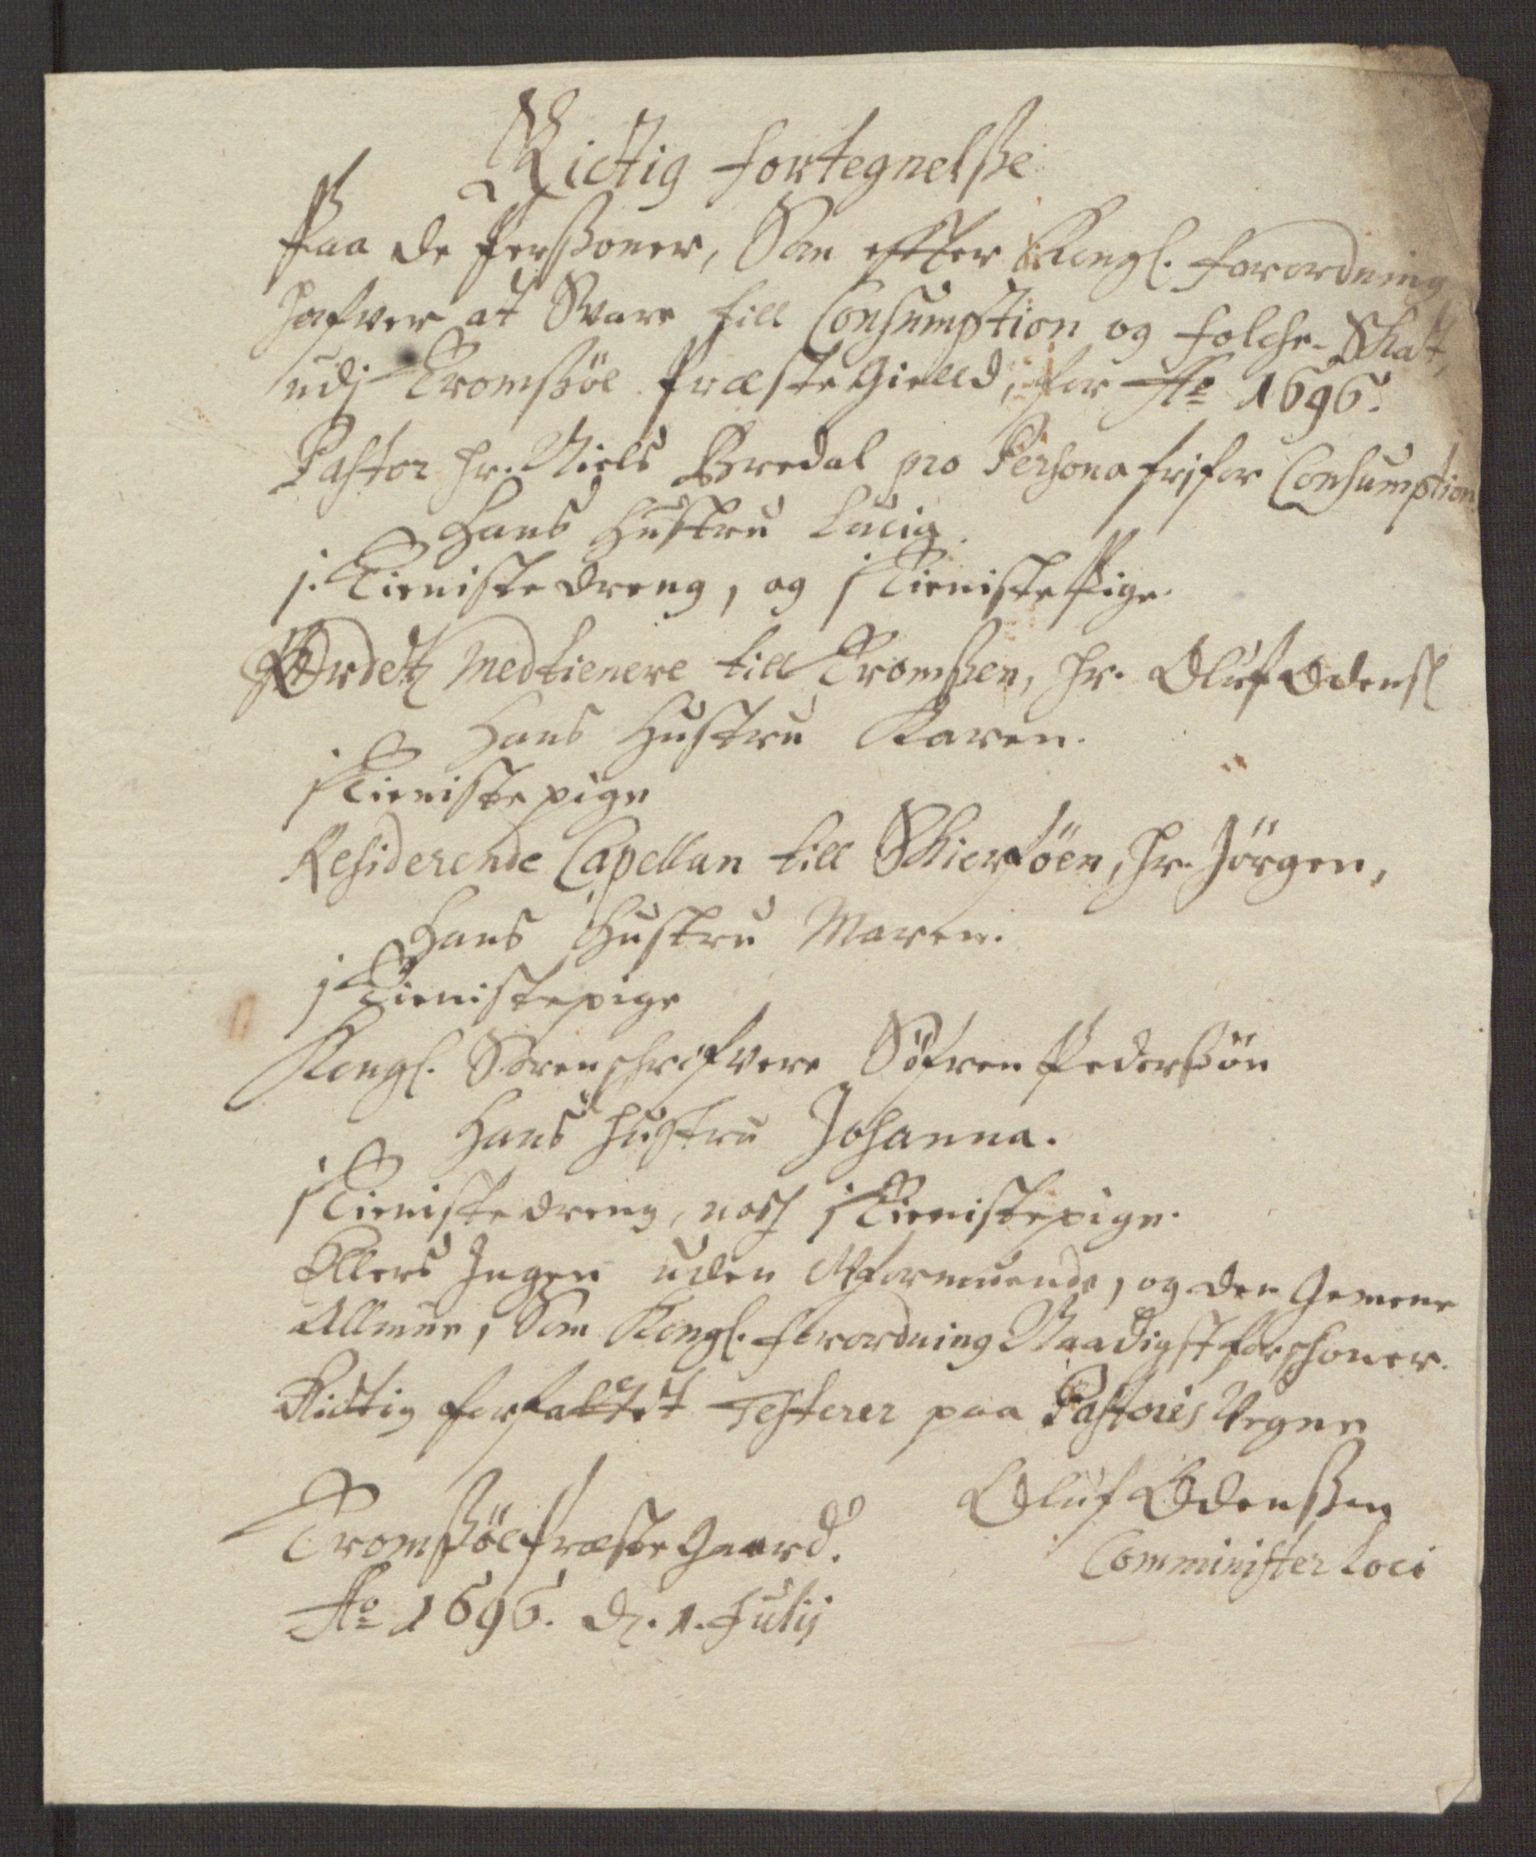 Rictig fortegnelße
Paa de Perßoner, Som effter Kongl. forordning
hafver at Svare till Consumption og folche-Skat,
udj Tromßöe Præste Gielld, for Ao 1696.
Pastor Hr. Niels Bredal pro Persona fri for Consumption
Hans Hustru Lucia.
j. Tieniste dreng, og j Tieniste Pige.
Ordetz Medtienere till Tromßen, Hr. Oluf Odens̃
Hans Hustru Karen.
j Tieniste pige
Residerende Capellan till Skierföen, Hr. Jörgen,
Hans Hustru Maren.
j Tieniste pige
Kongl. Sorenschrifvere Söfren Pederßön
Hans Hustru Johanna.
j Tieniste dreng, noch j Tieniste pige.
Ellers Ingen uden Uformuende, og den Gemene
Allmue, Som Kongl. forordning Naadigst forschoner.
Rictig forfattet Testerer paa Pastoris Vegne
Oluf Odenßen
Comminister Loci
Tromßöe Præste Gaard.
Ao 1696. d. 1. Julij